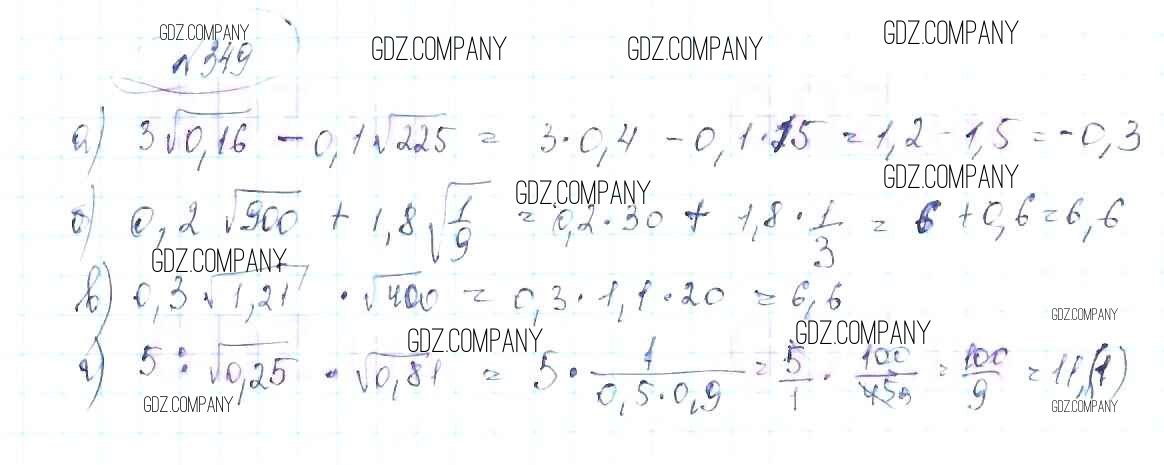 GDZ.COMPANY
№349
GDZ.COMPANY
GDZ.COMPANY
GDZ.COMPANY
а) 3√0,16 - 0,1√225 = 3·0,4 - 0,1·15 = 1,2 - 1,5 = -0,3
GDZ.COMPANY
GDZ.COMPANY
б) 0,2√900 + 1,8√1/9 = 0,2·30 + 1,8·1/3 = 6 + 0,6 = 6,6
GDZ.COMPANY
в) 0,3√1,21 · √400 = 0,3·1,1·20 = 6,6
GDZ.COMPANY
GDZ.COMPANY
GDZ.COMPANY
г) 5 : √0,25 · √0,81 = 5 · 1/0,5·0,9 = 5/1 · 100/45 = 100/9 = 11,(1)
GDZ.COMPANY
GDZ.COMPANY